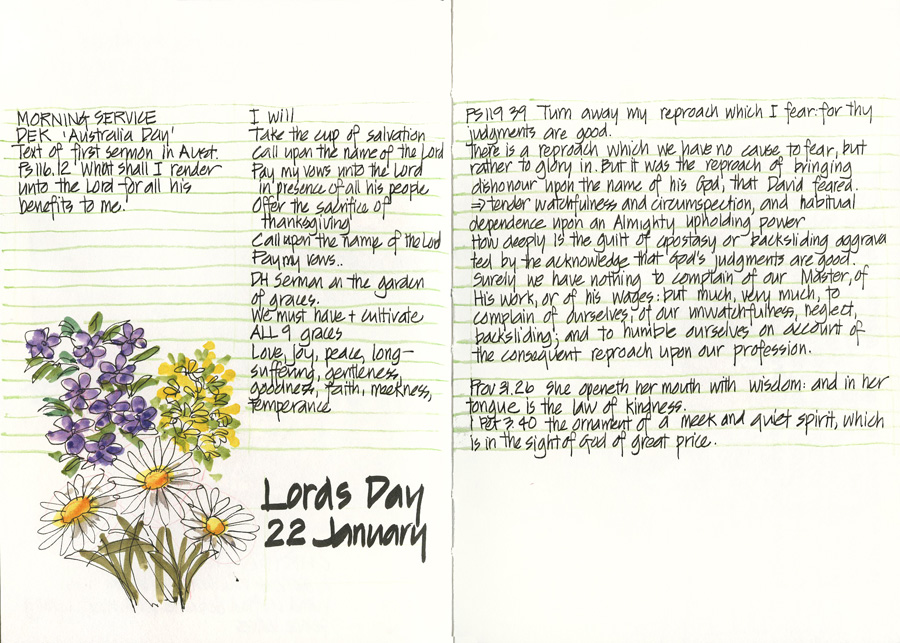 MORNING SERVICE
DEK 'Australia Day'
Text of first sermon in Aust.
Ps 116.12 'What shall I render
unto the Lord for all his
benefits to me.'
I will
Take the cup of salvation
Call upon the name of the Lord
Pay my vows unto the Lord
in presence of all his people
Offer the sacrifice of
thanksgiving
Call upon the name of the Lord
Pay my vows..
DH Sermon on the garden
of graces.
We must have + cultivate
ALL 9 graces
Love, joy, peace, long-
suffering, gentleness,
goodness, faith, meekness,
temperance
Lords Day
22 January
Ps 119 39 Turn away my reproach which I fear: for thy
judgments are good.
There is a reproach which we have no cause to fear, but
rather to glory in. But it was the reproach of bringing
dishonour upon the name of his God, that David feared.
⇒ tender watchfulness and circumspection, and habitual
dependence upon an Almighty upholding power
How deeply is the guilt of apostasy or backsliding aggrava
ted by the acknowledge that God's judgments are good.
Surely we have nothing to complain of our Master, of
His work, or of his wages: but much, very much, to
complain of ourselves, of our unwatchfulness, neglect,
backsliding; and to humble ourselves on account of
the consequent reproach upon our profession.
Prov 31.26 She openeth her mouth with wisdom: and in her
tongue is the law of kindness.
1 Pet 3.40 the ornament of a meek and quiet spirit, which
is in the sight of God of great price.